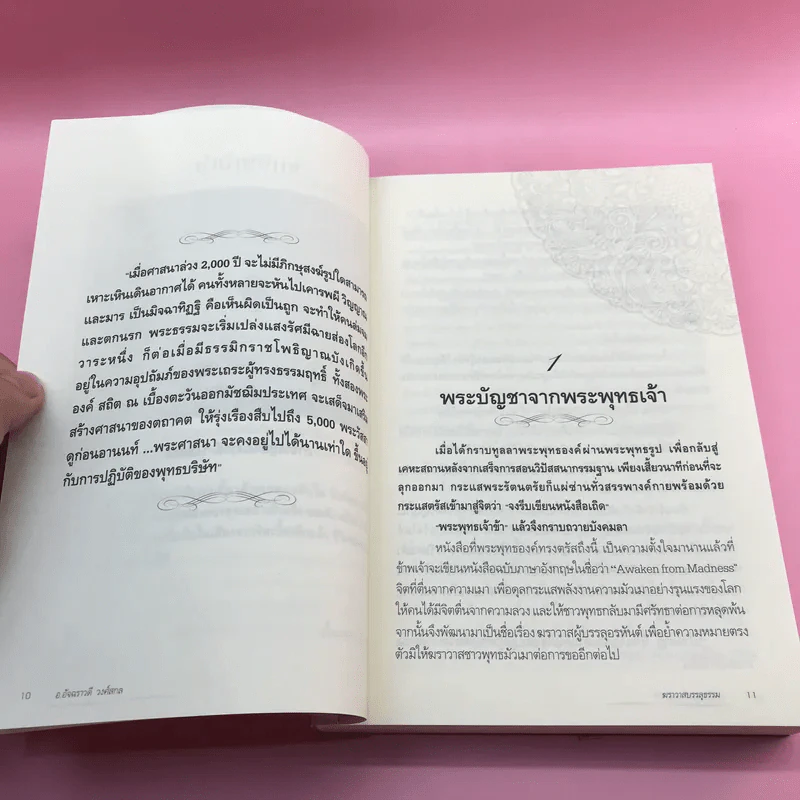 "เมื่อศาสนาล่วง 2,000 ปี จะไม่มีภิกษุสงฆ์รูปใดสามารถ
เหาะเหินเดินอากาศได้ คนทั้งหลายจะหันไปเคารพผี วิญญาณ
และมาร เป็นมิจฉาทิฏฐิ คือเห็นผิดเป็นถูก จะทำให้คน
และตกนรก พระธรรมจะเริ่มเปล่งแสงรัศมีฉายส่องโลกอีก
วาระหนึ่ง ก็ต่อเมื่อมีธรรมิกราชโพธิญาณบังเกิดขึ้น
อยู่ในความอุปถัมภ์ของพระเถระผู้ทรงธรรมฤทธิ์ ทั้งสองพระ
องค์ สถิต ณ เบื้องตะวันออกมัชฌิมประเทศ จะเสด็จมาเสริม
สร้างศาสนาของตถาคต ให้รุ่งเรืองสืบไปถึง 5,000 พระวัสสา
ดูก่อนอานนท์ ...พระศาสนา จะคงอยู่ไปได้นานเท่าใด ขึ้นอยู่
กับการปฏิบัติของพุทธบริษัท"
10 อ.อัจฉราวดี วงศ์สกล
1
พระบัญชาจากพระพุทธเจ้า
เมื่อได้กราบทูลลาพระพุทธองค์ผ่านพระพุทธรูป เพื่อกลับสู่
เคหะสถานหลังจากเสร็จการสอนวิปัสสนากรรมฐาน เพียงเสี้ยวนาทีก่อนที่จะ
ลุกออกมา กระแสพระรัตนตรัยก็แผ่ซ่านทั่วสรรพางค์กายพร้อมด้วย
กระแสตรัสเข้ามาสู่จิตว่า "จงรีบเขียนหนังสือเถิด"
"พระพุทธเจ้าข้า" แล้วจึงกราบถวายบังคมลา
หนังสือที่พระพุทธองค์ทรงตรัสถึงนี้ เป็นความตั้งใจมานานแล้วที่
ข้าพเจ้าจะเขียนหนังสือฉบับภาษาอังกฤษในชื่อว่า "Awaken from Madness"
จิตที่ตื่นจากความเมา เพื่อดูลกระแสพลังงานความมัวเมาอย่างรุนแรงของโลก
ให้คนได้มีจิตตื่นจากความลวง และให้ชาวพุทธกลับมามีศรัทธาต่อการหลุดพ้น
จากนั้นจึงพัฒนามาเป็นชื่อเรื่อง ฆราวาสผู้บรรลุอรหันต์ เพื่อย้ำความหมายตรง
ตัวมิให้ฆราวาสชาวพุทธมัวเมาต่อการขออีกต่อไป
ฆราวาสบรรลุธรรม 11